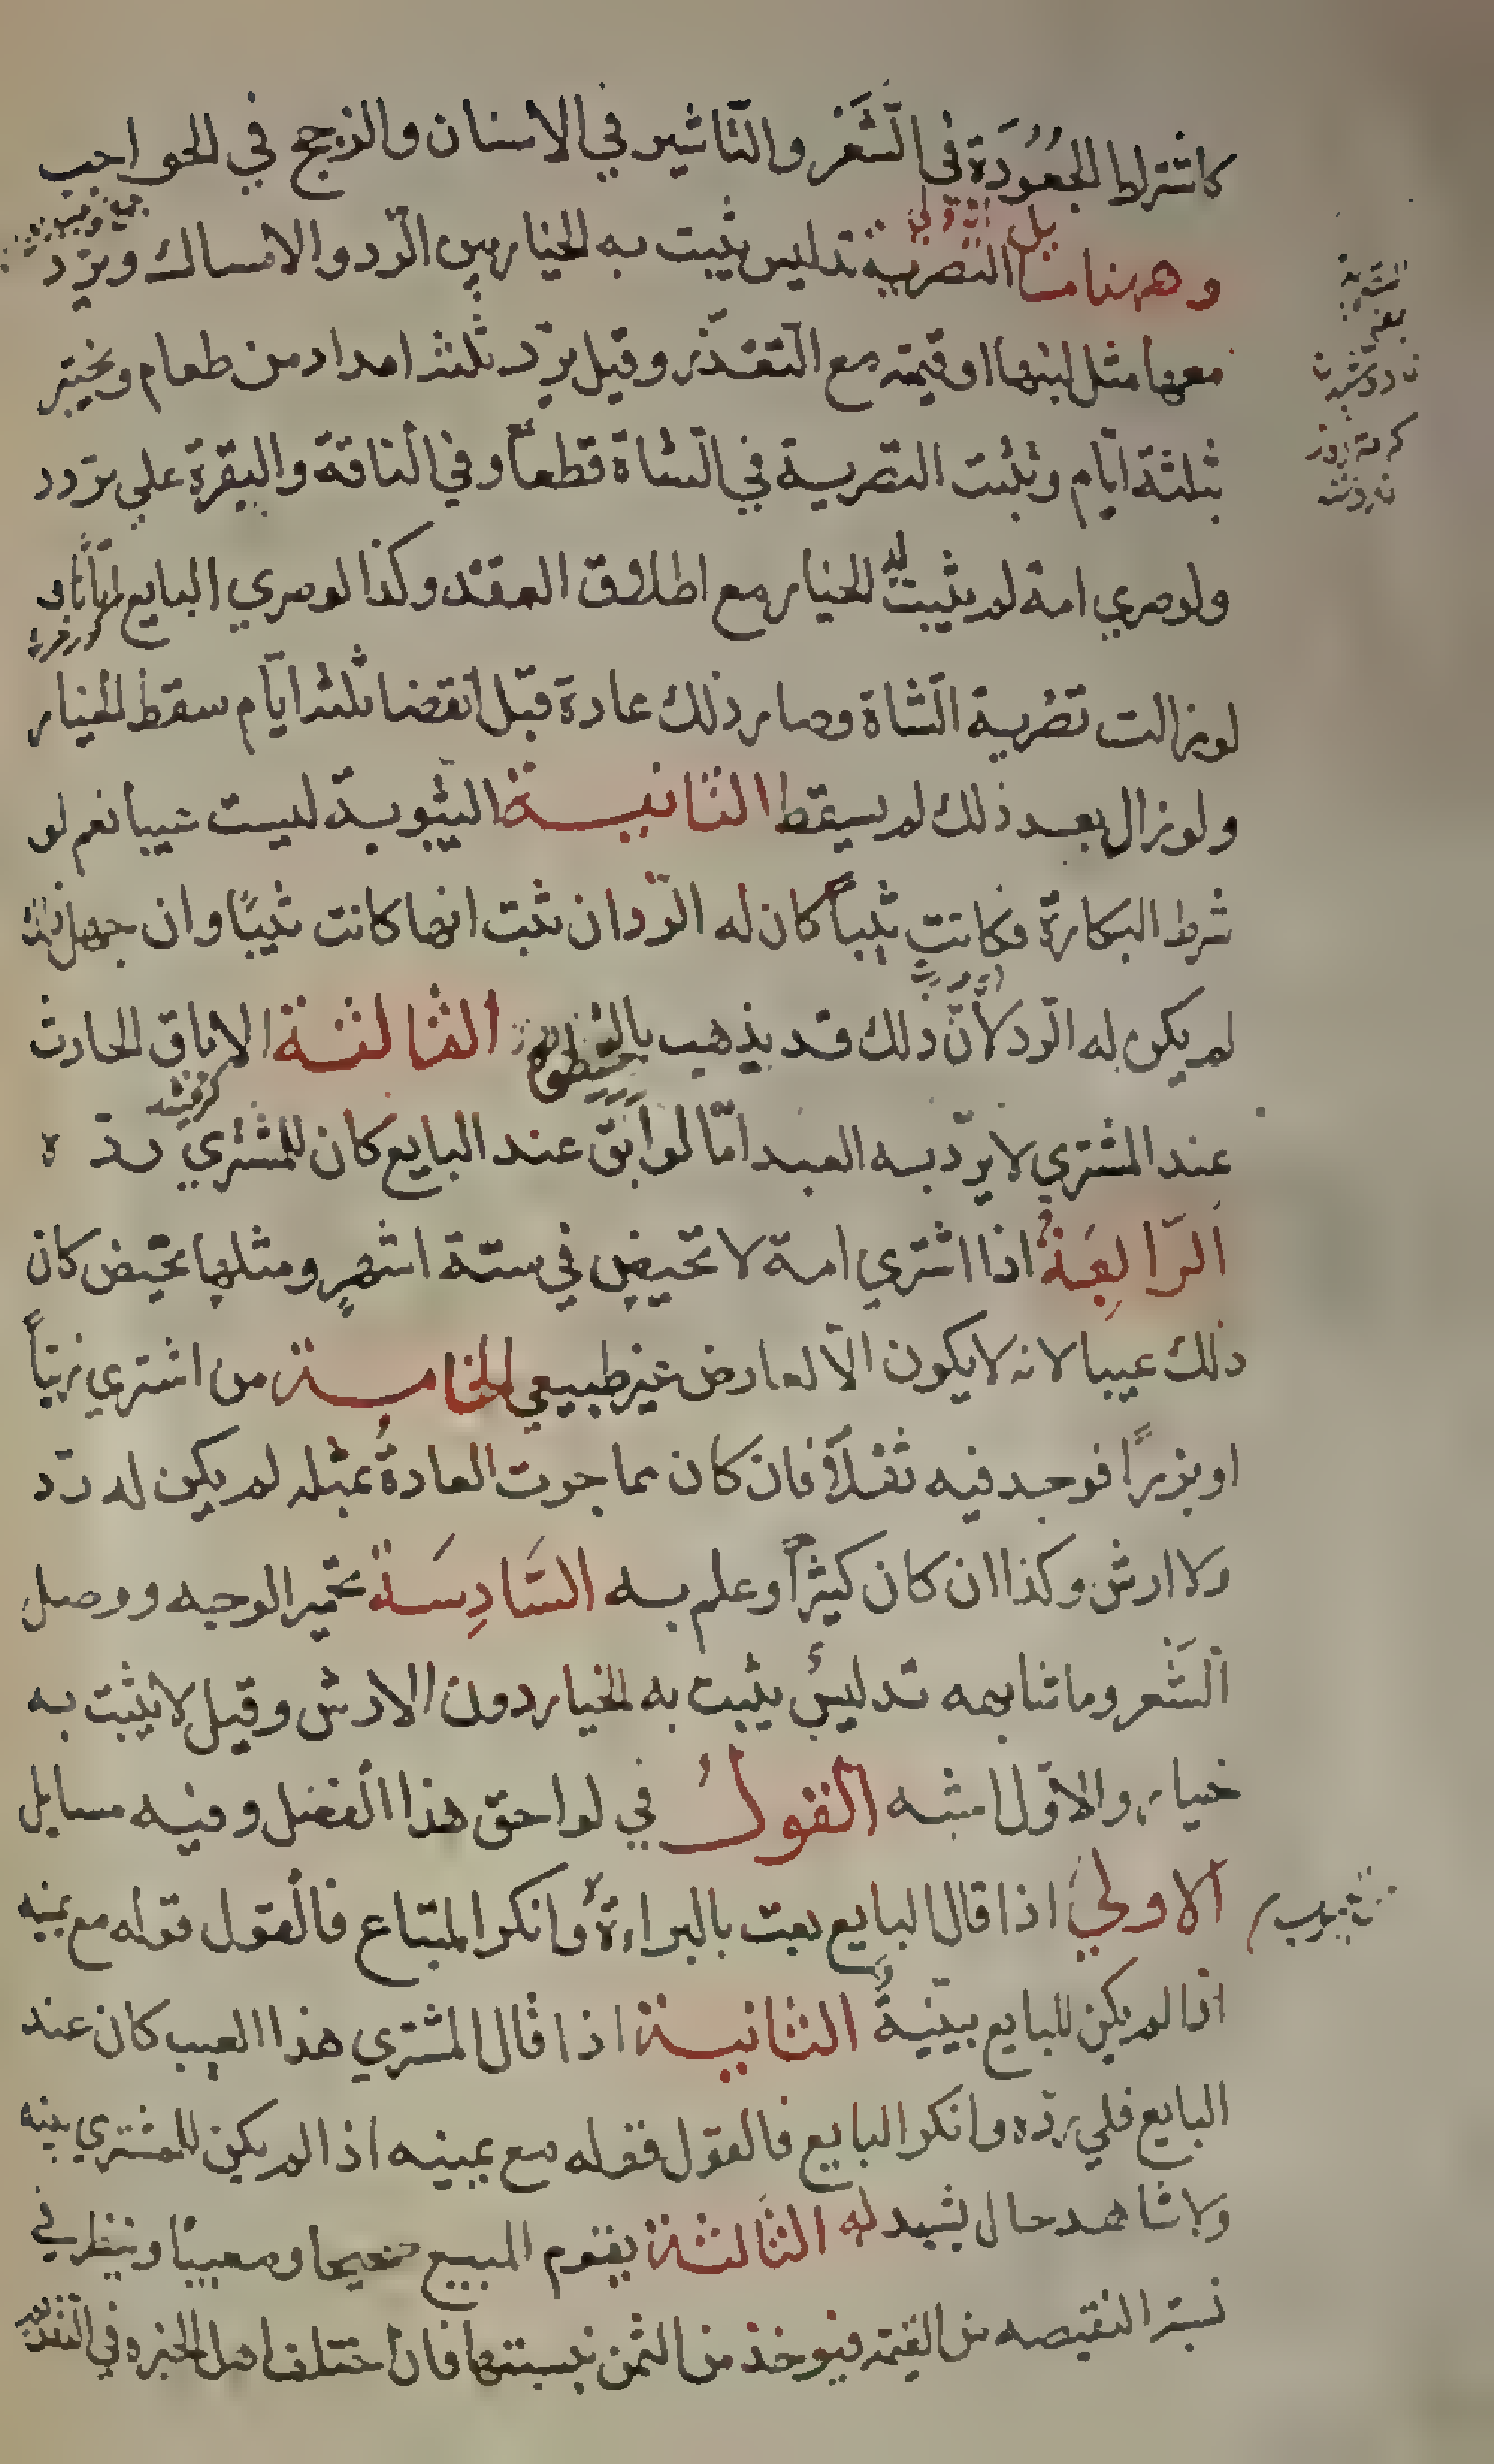 كاشتراط الجُعُودَة في الشَّعْر والتّاشير في الاسنان والزجج في الحواجب
وههنا مسائل الاولى التصرية تدليس يثبت به الخيار بين الرّد والامساك ويرّد
معها مثل لبنها او قيمته مع التعذّر وقيل يرّد ثلثة امداد من طعام ويختبر
بثلثة ايّام وتثبت التصرية في الشاة قطعاً وفي الناقة والبقرة على تردد
ولو صري امة لم يثبت له الخيار مع اطلاق العقد وكذا لو صري البايع اتاناً و
لو زالت تصرية الشاة وصار ذلك عادة قبل انقضا ثلثة ايّام سقط الخيار
ولو زال بعد ذلك لم يسقط الثانيـة الثيوبة ليست عيبا نعم لو
شرط البكارة فكانت ثيباً كان له الرّد ان ثبت انها كانت ثيبًا وان جهل ذلك
لم يكن له الرّد لانّ ذلك قد يذهب الثالثة الاباق الحادث
عند المشتري لا يردّ به العبد امّا لو ابق عند البايع كان للمشتري ردّه
الرّابِعَةُ اذا اشتري امة لا تحيض في ستّة اشهر ومثلها تحيض كان
ذلك عيبا لانه لا يكون الّا لعارض غير طبيعي الخامسة من اشتري زيتاً
او بزرًا فوجد فيه ثفلاً فان كان مما جرت العادةُ بمثله لم يكن له ردّ
ولا ارش وكذا ان كان كثيراً وعلم به السَّادِسَة تحمير الوجه ووصل
الشَّعر وما شابهه تدليسٌ يثبت به الخيار دون الارش وقيل لا يثبت به
خيار والاوّل اشبه القولُ في لواحق هذا الفصل وفيه مسايل
الاولي اذا قال البايع بعت بالبراءة وانكر المبتاع فالقول قوله مع يمينه
اذا لم يكن للبايع بيّنةٌ الثانيـة اذا قال المشتري هذا العيب كان عند
البايع فلي ردّه وانكر البايع فالقول قوله مع يمينه اذا لم يكن للمشتري بينه
ولا شاهد حال يشهد له الثالثة يقوم المبيع صحيحا ومعيبًا وينظر في
نسبة النقيصه من القيمة فيوخذ من الثمن بنسبتها فان اختلف اهل الخبره في التقويم